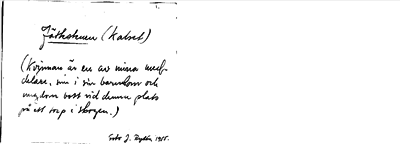 Jätkstenen (Kalset)
(Kvinnan är en av mina med-
delare, som i sin barndom och
ungdom bott vid denna plats
på ett torp i skogen.)
Foto J. 1915.